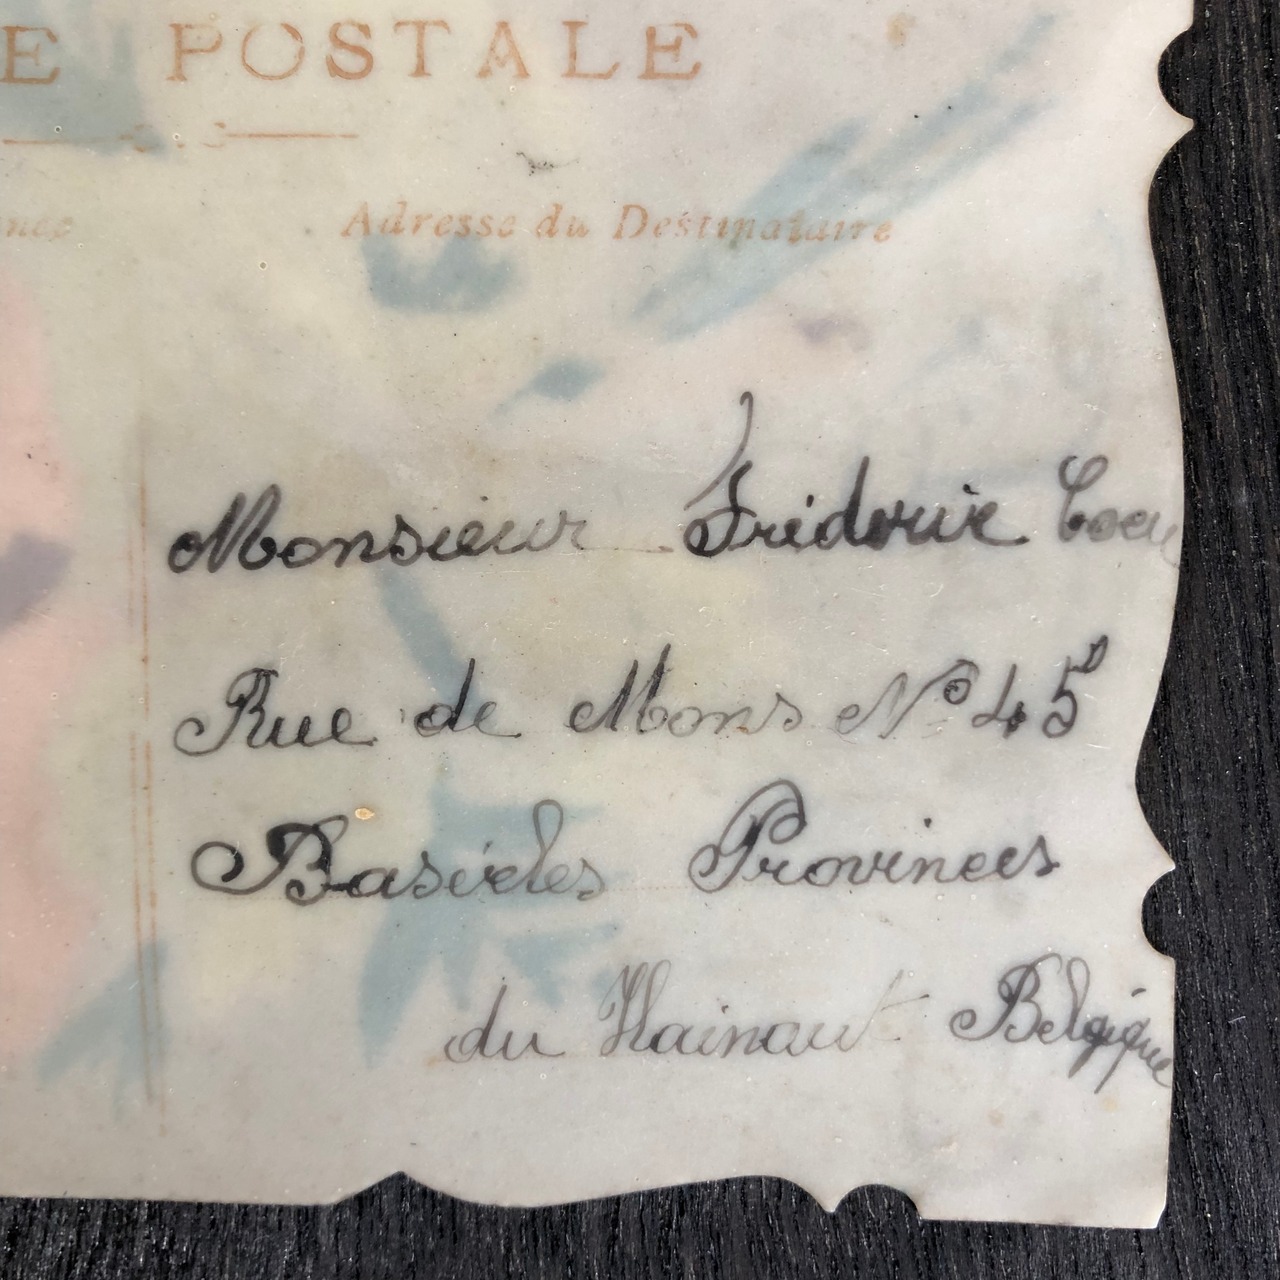 E POSTALE
Adresse du Destinataire
Monsieur
Rue de Mons Nº 45
Basècles Provinces
du Hainaut Belgique